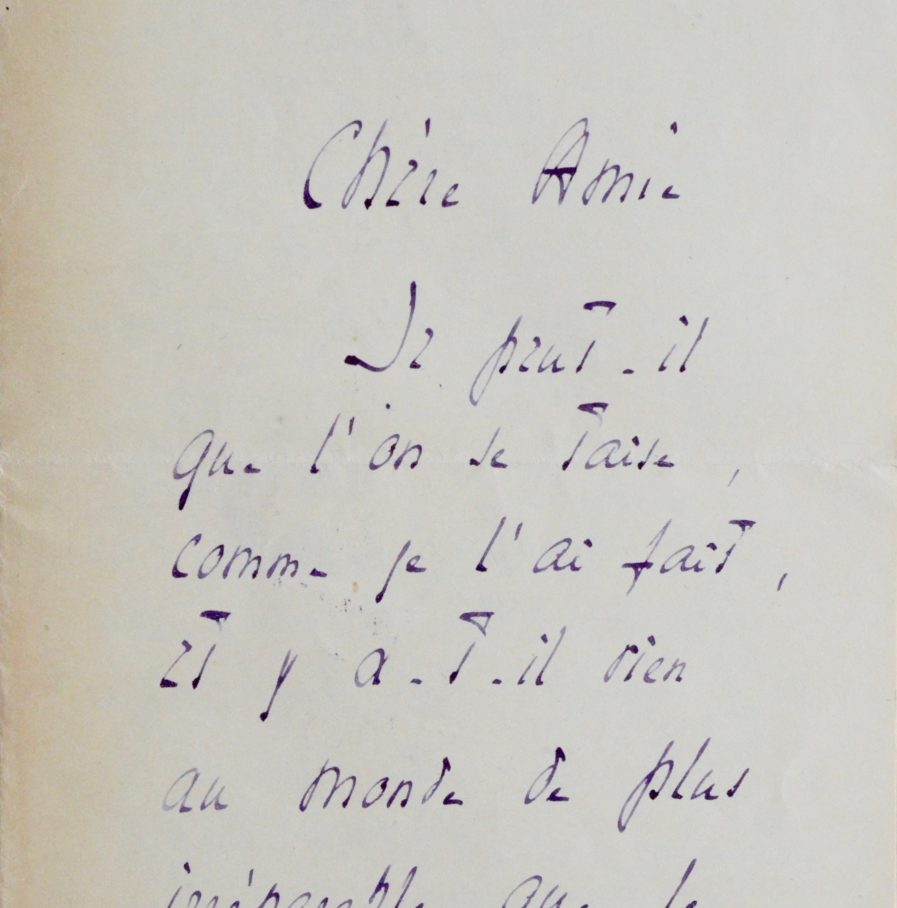 Chère Amie
Se peut-il
que l'on se taise,
comme je l'ai fait,
et y a-t-il rien
au monde de plus
irréparable que le